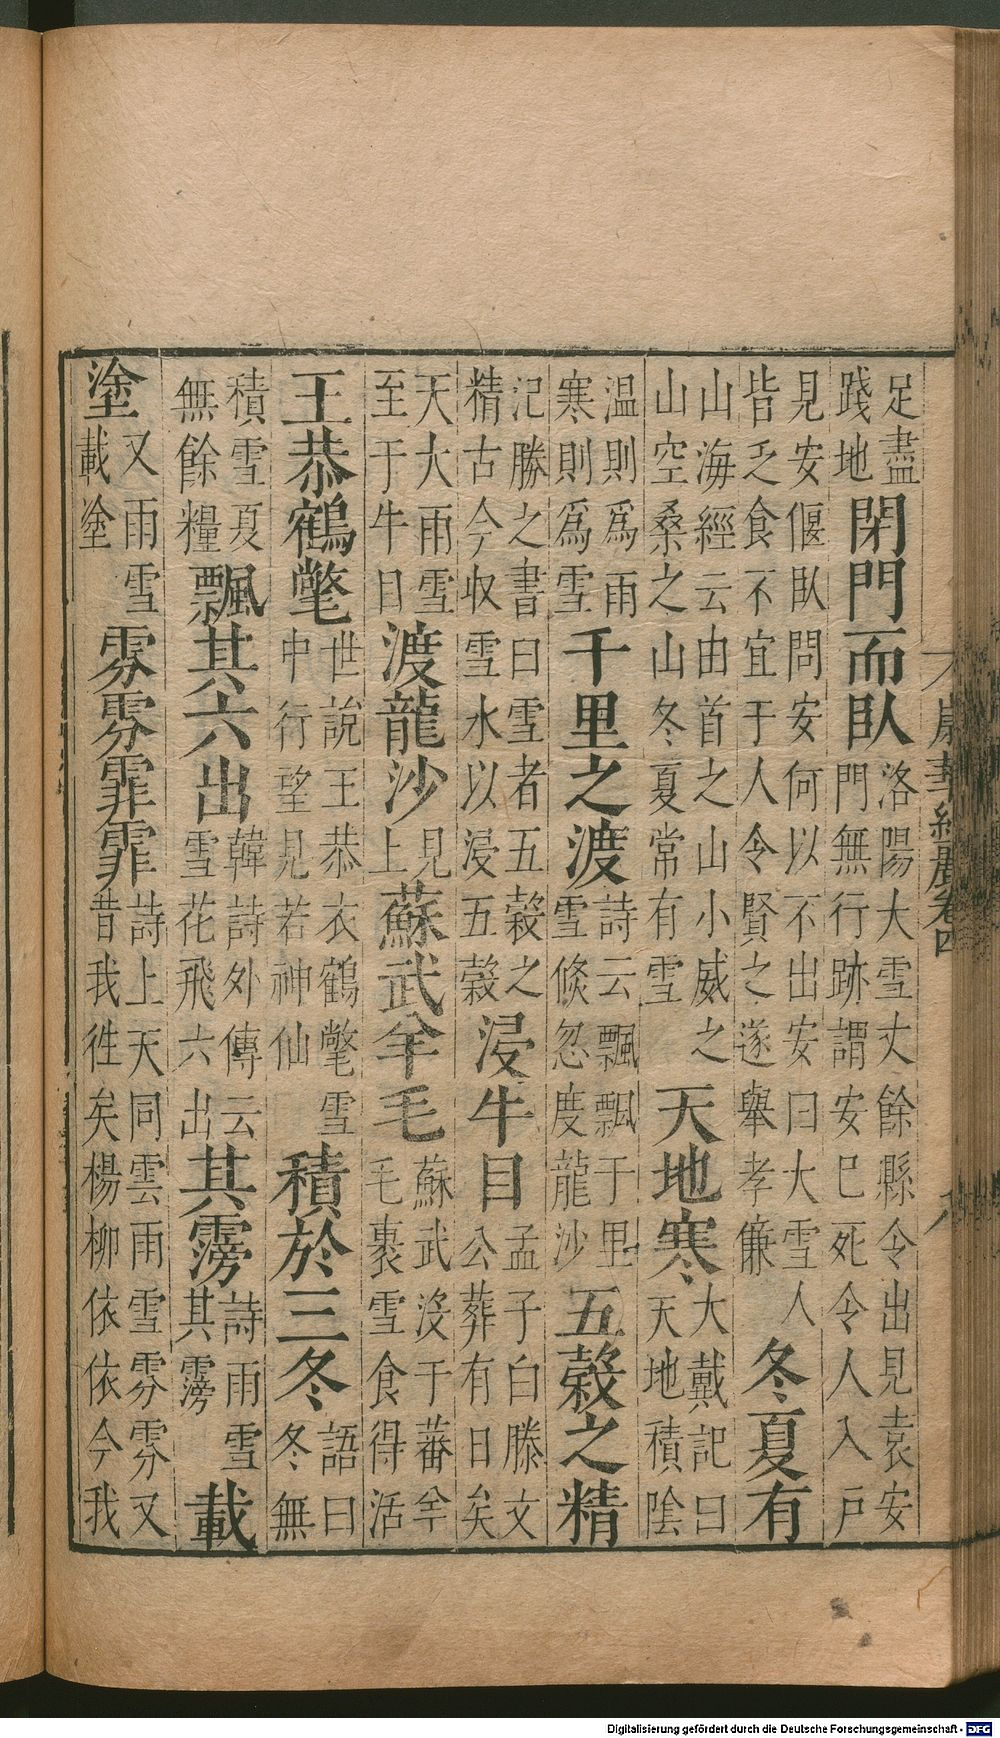 足盡踐地閉門而臥洛陽大雪丈餘縣令出見袁安門無行跡謂安巳死令人入戶
見安偃臥問安何以不出安曰大雪人皆乏食不宜于人令賢之遂舉孝廉冬夏有
山海經云由首之山小威之山空桑之山冬夏常有雪天地寒大戴記曰天地積陰
温則爲雨寒則爲雪千里之渡詩云飄飄于里雪倐忽度龍沙五穀之精
汜勝之書曰雪者五穀之精古今収雪水以浸五穀浸牛目孟子白滕文公葬有日矣
天大雨雪至于牛日渡龍沙見上蘇武羊毛蘇武沒于蕃羊毛裹雪食得活
王恭鶴氅世說王恭衣鶴氅雪中行望見若神仙積於三冬語曰冬無
積雪夏無餘糧飄其六出韓詩外傳云雪花飛六出其霶詩雨雪其霶載
塗又雨雪載塗雰雰霏霏詩上天同雲雨雪雰雰又昔我徃矣楊柳依依今我
卷四
Digitalisierung gefördert durch die Deutsche Forschungsgemeinschaft - DFG